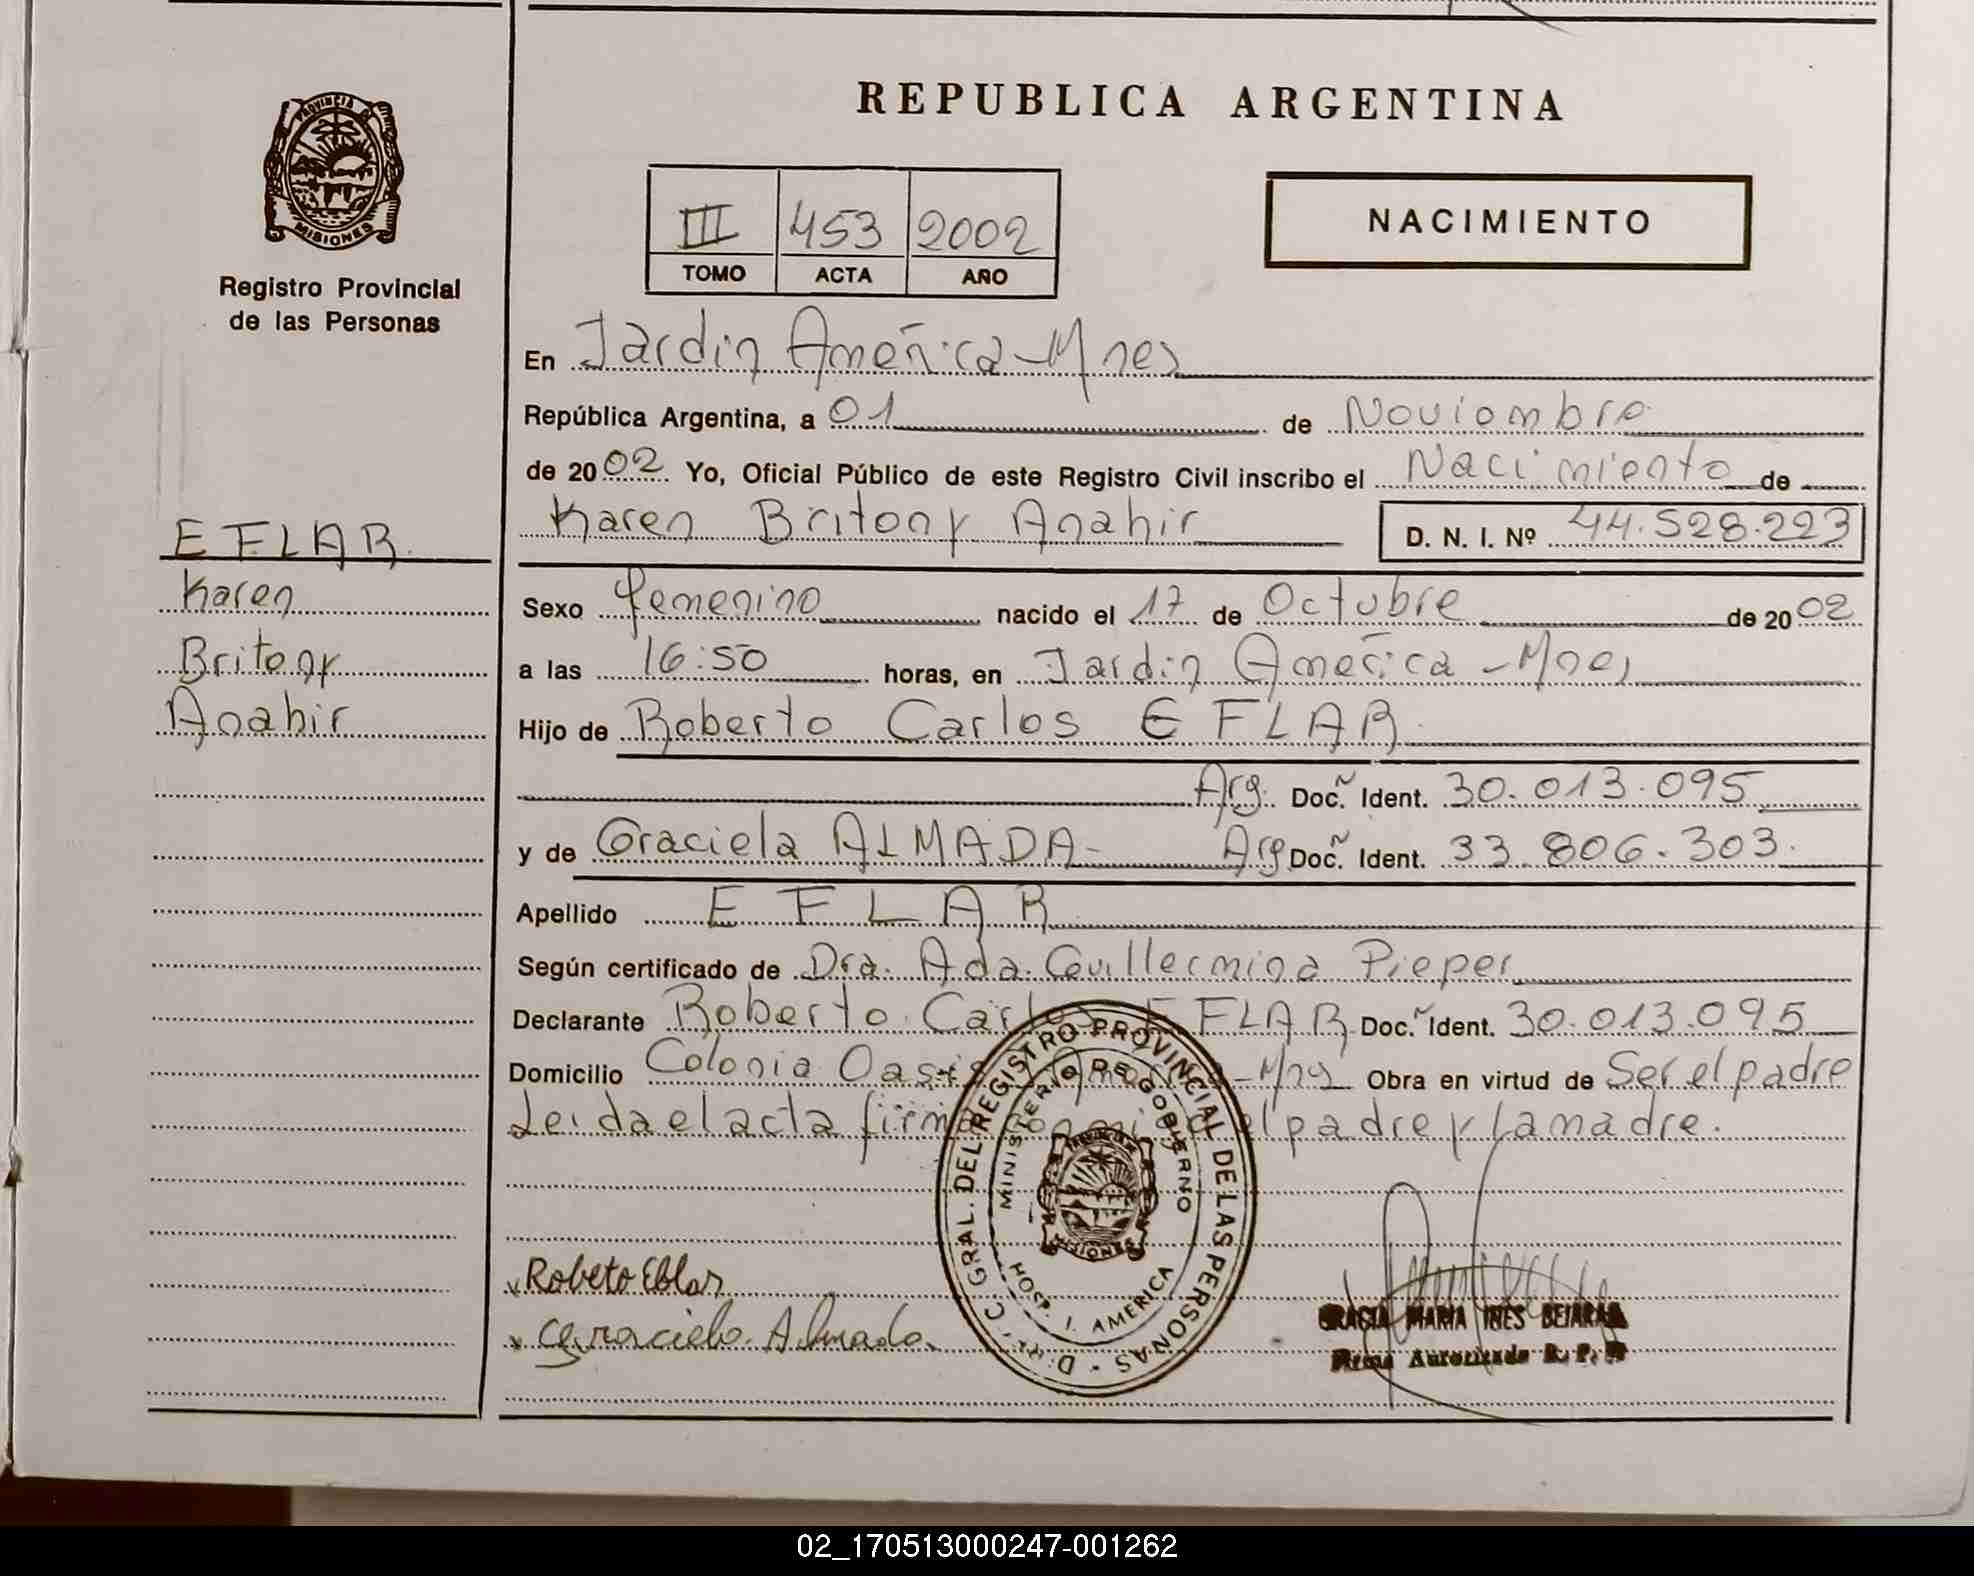 REPUBLICA ARGENTINA
PROVINCIA D
MISIONES
Registro Provincial
de las Personas
III 453 2002
TOMO ACTA AÑO
NACIMIENTO
En Jardin América - Mnes
República Argentina, a 01 de Noviembre
de 2002 Yo, Oficial Público de este Registro Civil inscribo el Nacimiento de
Karen Britony Anahir D. N. I. Nº 44.528.223
EFLAR
Karen
Britony
Anahir
Sexo femenino nacido el 17 de Octubre de 2002
a las 16:50 horas, en Jardin América - Mnes
Hijo de Roberto Carlos EFLAR
Arg. Doc. Ident. 30.013.095
y de Graciela ALMADA - Arg Doc. Ident. 33.806.303.
Apellido EFLAR
Según certificado de Dra. Ada Guillermina Pieper
Declarante Roberto Carlos EFLAR Doc. Ident. 30.013.095
Domicilio Colonia Oasis - Mns Obra en virtud de Ser el padre
Leida el acta firma el padre y la madre.
GRAL. DEL REGISTRO PROVINCIAL DE LAS PERSONAS
MINISTERIO DE GOBIERNO
MISIONES
HOSP. J. AMERICA
Robeto Eblar
Graciela Almada
GRACIA MARIA INES BEJARAN
Firma Autorizada R. P. P
02_170513000247-001262